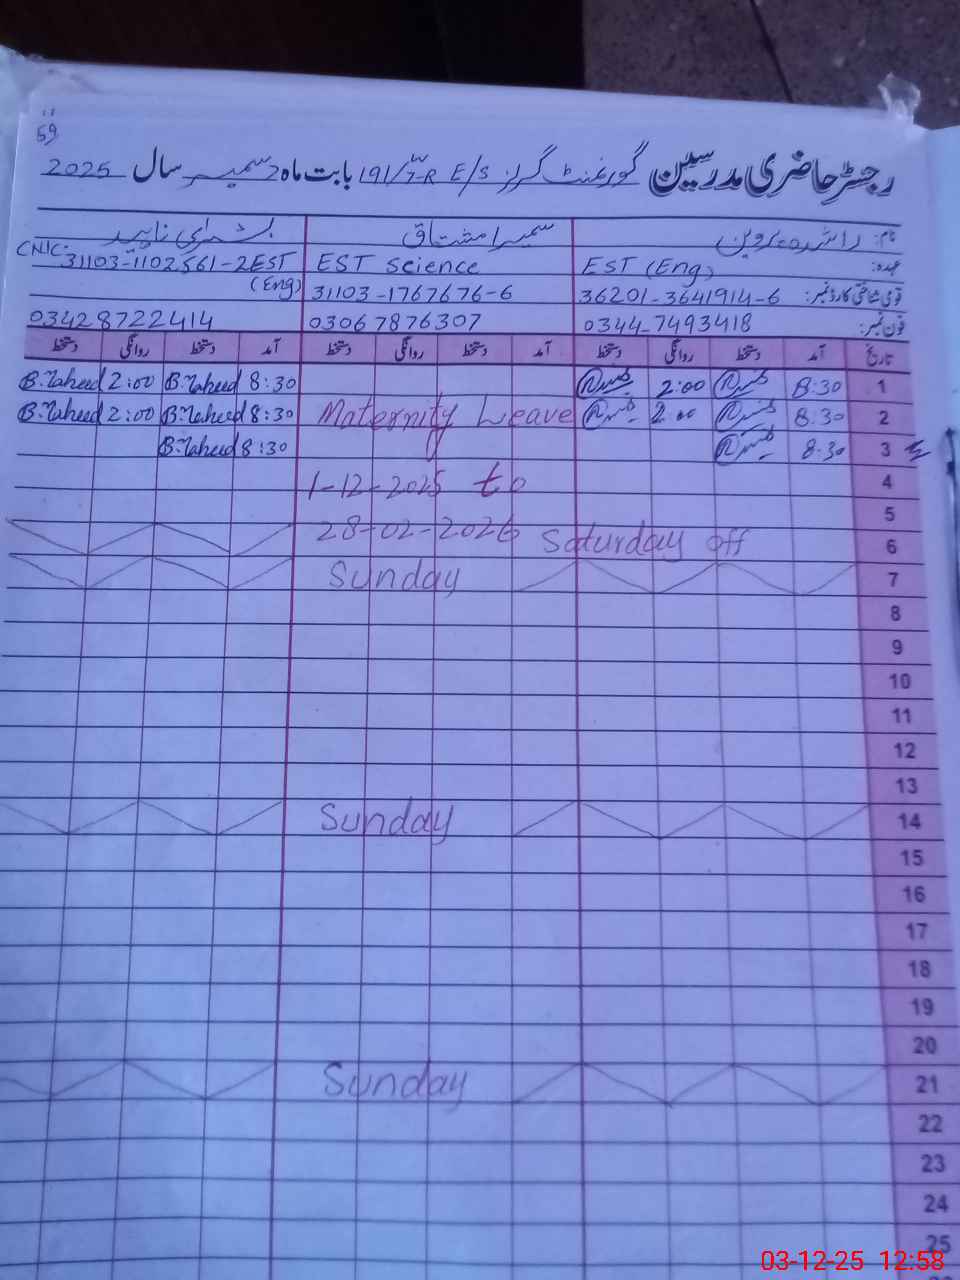 59
رجسٹر حاضری مدرسین گورنمنٹ گرلز E/S 191/7-R بابت ماہ دسمبر سال 2025
نام: راشدہ پروین سمیرا مشتاق بشریٰ ناہید
عہدہ: EST (Eng) EST Science EST (Eng)
قومی شناختی کارڈ نمبر: 36201-3641914-6 31103-1767676-6 CNIC: 31103-1102561-2
فون نمبر: 0344-7493418 03067876307 03428722414
تاریخ آمد دستخط روانگی دستخط آمد دستخط روانگی دستخط آمد دستخط روانگی دستخط
1 8:30 2:00 8:30 B.Naheed 2:00 B.Naheed
2 8:30 2:00 Maternity Leave 8:30 B.Naheed 2:00 B.Naheed
3 8:30 8:30 B.Naheed
4 1-12-2025 to
5 28-02-2026
6 Saturday off
7 Sunday
8
9
10
11
12
13
14 Sunday
15
16
17
18
19
20
21 Sunday
22
23
24
25
03-12-25 12:58